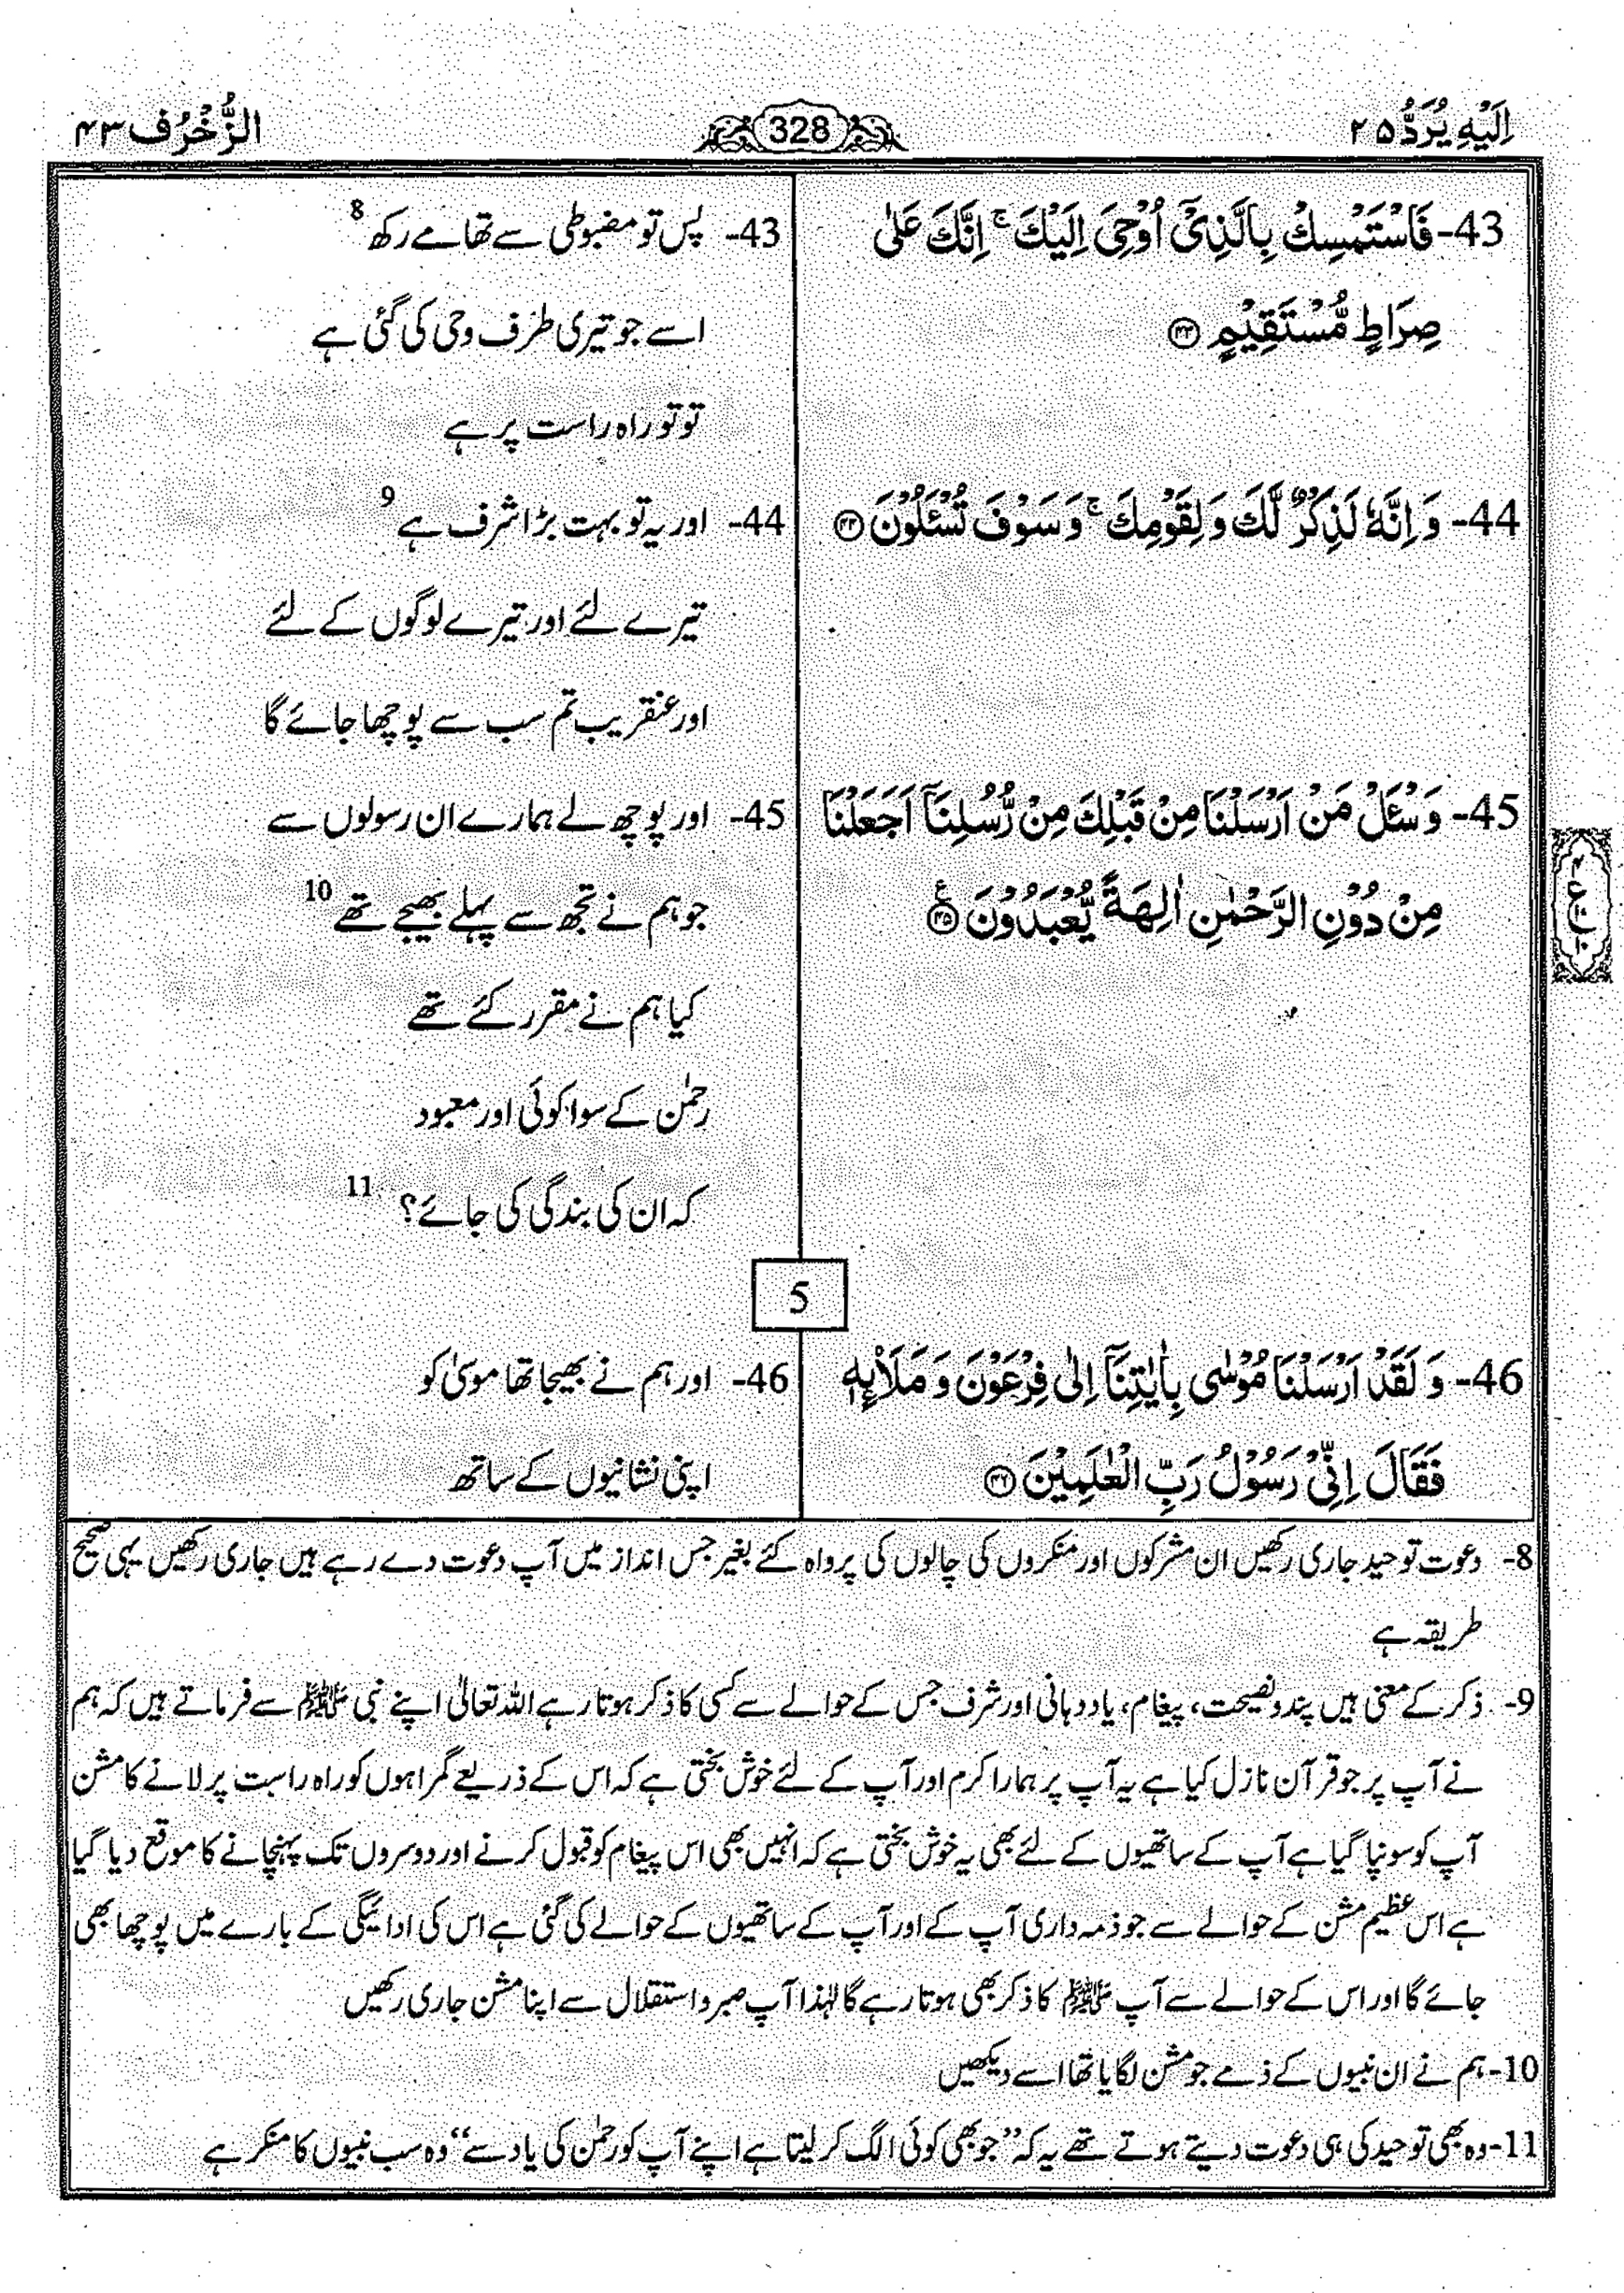 اِلَيْهِ يُرَدُّ ۲۵
328
الزُّخْرُف ۴۳
43- فَاسْتَمْسِكْ بِالَّذِيْٓ اُوْحِيَ اِلَيْكَ ۚ اِنَّكَ عَلٰى
صِرَاطٍ مُّسْتَقِيْمٍ ﴿۴۳﴾
43- پس تو مضبوطی سے تھامے رکھ 8
اسے جو تیری طرف وحی کی گئی ہے
تو تو راہ راست پر ہے
44- وَ اِنَّهٗ لَذِكْرٌ لَّكَ وَ لِقَوْمِكَ ۚ وَ سَوْفَ تُسْـَٔلُوْنَ ﴿۴۴﴾
44- اور یہ تو بہت بڑا شرف ہے 9
تیرے لئے اور تیرے لوگوں کے لئے
اور عنقریب تم سب سے پوچھا جائے گا
45- وَ سْـَٔلْ مَنْ اَرْسَلْنَا مِنْ قَبْلِكَ مِنْ رُّسُلِنَآ اَجَعَلْنَا
مِنْ دُوْنِ الرَّحْمٰنِ اٰلِهَةً يُّعْبَدُوْنَ ﴿۴۵﴾ ع
45- اور پوچھ لے ہمارے ان رسولوں سے
جو ہم نے تجھ سے پہلے بھیجے تھے 10
کیا ہم نے مقرر کئے تھے
رحمٰن کے سوا کوئی اور معبود
کہ ان کی بندگی کی جائے؟ 11
5
46- وَ لَقَدْ اَرْسَلْنَا مُوْسٰى بِاٰيٰتِنَآ اِلٰى فِرْعَوْنَ وَ مَلَا۟ئِهٖ
فَقَالَ اِنِّيْ رَسُوْلُ رَبِّ الْعٰلَمِيْنَ ﴿۴۶﴾
46- اور ہم نے بھیجا تھا موسیٰ کو
اپنی نشانیوں کے ساتھ
8- دعوت توحید جاری رکھیں ان مشرکوں اور منکروں کی چالوں کی پرواہ کئے بغیر جس انداز میں آپ دعوت دے رہے ہیں جاری رکھیں یہی صحیح
طریقہ ہے
9- ذکر کے معنی ہیں پندونصیحت، پیغام، یاددہانی اور شرف جس کے حوالے سے کسی کا ذکر ہوتا رہے اللہ تعالیٰ اپنے نبی ﷺ سے فرماتے ہیں کہ ہم
نے آپ پر جو قرآن نازل کیا ہے یہ آپ پر ہمارا کرم اور آپ کے لئے خوش بختی ہے کہ اس کے ذریعے گمراہوں کو راہ راست پر لانے کا مشن
آپ کو سونپا گیا ہے آپ کے ساتھیوں کے لئے بھی یہ خوش بختی ہے کہ انہیں بھی اس پیغام کو قبول کرنے اور دوسروں تک پہنچانے کا موقع دیا گیا
ہے اس عظیم مشن کے حوالے سے جو ذمہ داری آپ کے اور آپ کے ساتھیوں کے حوالے کی گئی ہے اس کی ادائیگی کے بارے میں پوچھا بھی
جائے گا اور اس کے حوالے سے آپ ﷺ کا ذکر بھی ہوتا رہے گا لہٰذا آپ صبر و استقلال سے اپنا مشن جاری رکھیں
10- ہم نے ان نبیوں کے ذمے جو مشن لگایا تھا اسے دیکھیں
11- وہ بھی توحید کی ہی دعوت دیتے ہوتے تھے یہ کہ ’’جو بھی کوئی الگ کر لیتا ہے اپنے آپ کو رحمٰن کی یاد سے‘‘ وہ سب نبیوں کا منکر ہے